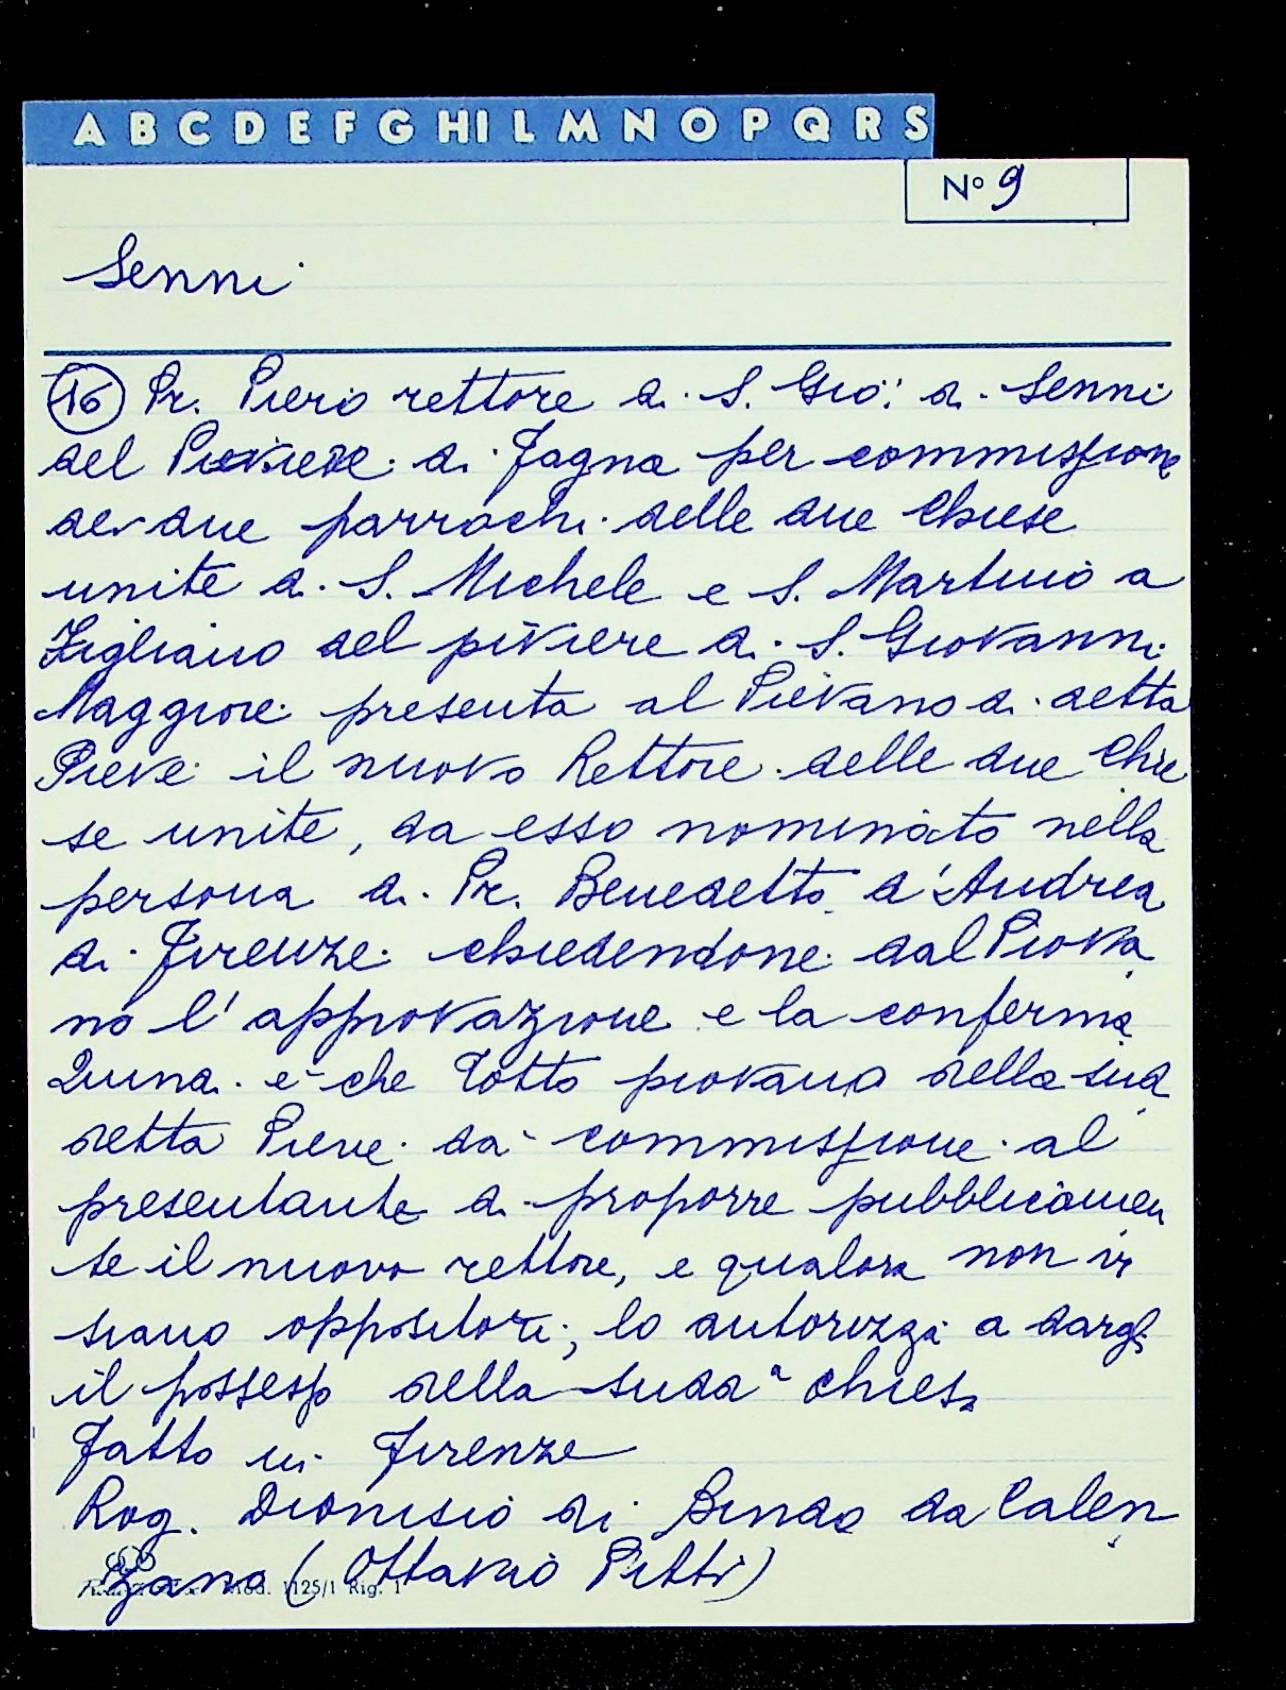 A B C D E F G H I L M N O P Q R S
Nº 9
Senni
16 Pr. Piero rettore di S. Gio: di Senni
del Piviere di Fagna per commissione
dei due parrochi delle due Chiese
unite di S. Michele e S. Martino a
Figliano del piviere di S. Giovanni
Maggiore presenta al Pievano di detta
Pieve il nuovo Rettore delle due Chie
se unite, da esso nominato nella
persona di Pr. Benedetto d'Andrea
di Firenze chiedendone dal Piova
no l'approvazione e la conferma
Quina e che Totto piovano della sud
detta Pieve dà commissione al
presentante di proporre pubblicamen
te il nuovo rettore, e qualora non vi
siano oppositori, lo autorizza a dargli
il possesso della sudda chiesa
Fatto in Firenze
Rog. Dionisio di Bindo da Calen
zano (Ottavio Pitti)
Mod. 1125/1 Rig. 1